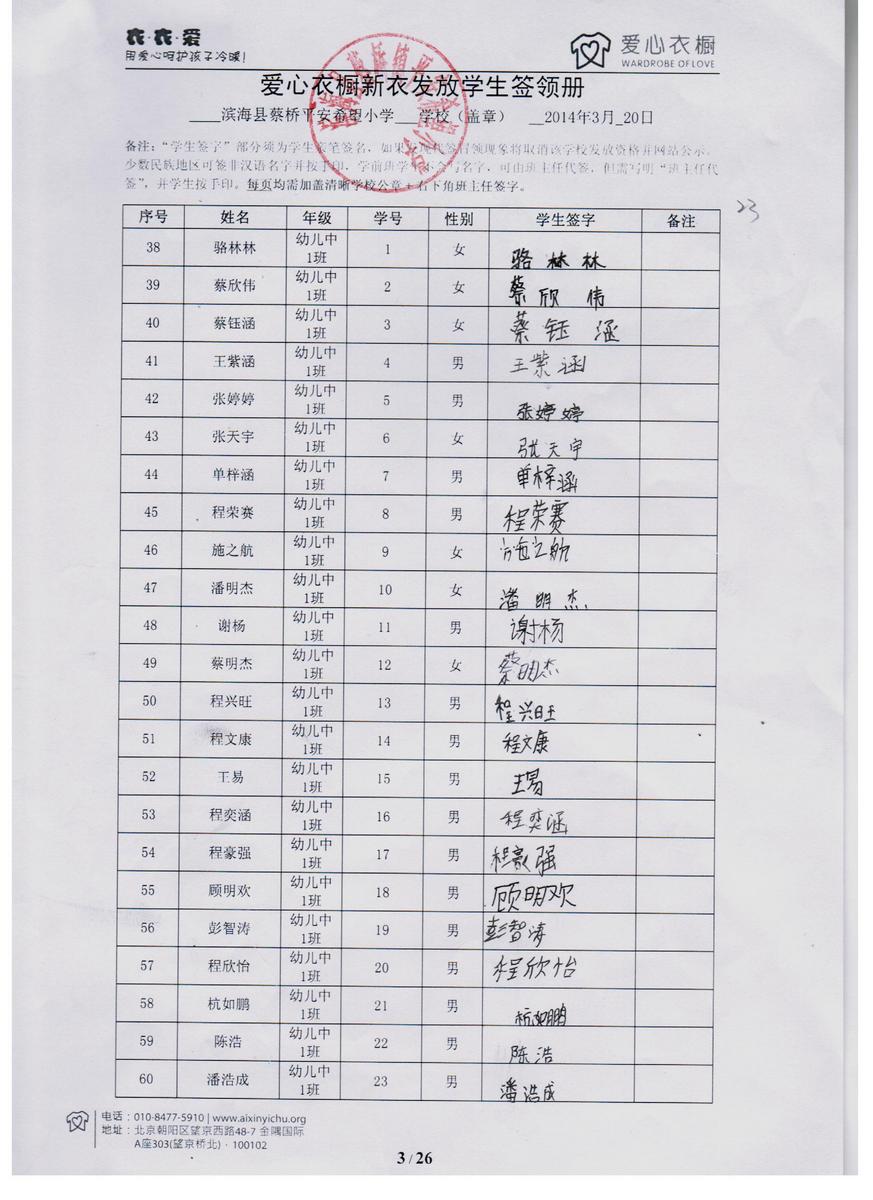 衣·衣·爱
用爱心呵护孩子冷暖!
爱心衣橱
WARDROBE OF LOVE
爱心衣橱新衣发放学生签领册
____滨海县蔡桥平安希望小学___学校（盖章） __2014年3月_20日
备注：“学生签字”部分须为学生亲笔签名，如果发现代签冒领现象将取消该学校发放资格并网站公示。
少数民族地区可签非汉语名字并按手印，学前班学生不会写名字，可由班主任代签，但需写明“班主任代
签”，并学生按手印。每页均需加盖清晰学校公章+右下角班主任签字。
23
序号 姓名 年级 学号 性别 学生签字 备注
38 骆林林 幼儿中1班 1 女 骆林林
39 蔡欣伟 幼儿中1班 2 女 蔡欣伟
40 蔡钰涵 幼儿中1班 3 女 蔡钰涵
41 王紫涵 幼儿中1班 4 男 王紫涵
42 张婷婷 幼儿中1班 5 男 张婷婷
43 张天宇 幼儿中1班 6 女 张天宇
44 单梓涵 幼儿中1班 7 男 单梓涵
45 程荣赛 幼儿中1班 8 男 程荣赛
46 施之航 幼儿中1班 9 女 施之航
47 潘明杰 幼儿中1班 10 女 潘明杰
48 谢杨 幼儿中1班 11 男 谢杨
49 蔡明杰 幼儿中1班 12 女 蔡明杰
50 程兴旺 幼儿中1班 13 男 程兴旺
51 程文康 幼儿中1班 14 男 程文康
52 王易 幼儿中1班 15 男 王易
53 程奕涵 幼儿中1班 16 男 程奕涵
54 程豪强 幼儿中1班 17 男 程豪强
55 顾明欢 幼儿中1班 18 男 顾明欢
56 彭智涛 幼儿中1班 19 男 彭智涛
57 程欣怡 幼儿中1班 20 男 程欣怡
58 杭如鹏 幼儿中1班 21 男 杭如鹏
59 陈浩 幼儿中1班 22 男 陈浩
60 潘浩成 幼儿中1班 23 男 潘浩成
电话：010-8477-5910 | www.aixinyichu.org
地址：北京朝阳区望京西路48-7 金隅国际
A座303(望京桥北)·100102
3 / 26